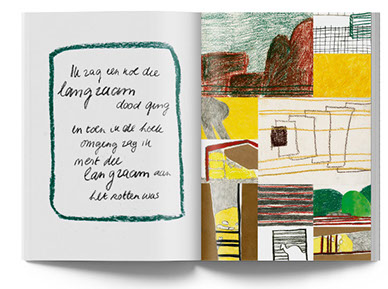 Ik zag een koe die
langzaam
dood ging
en toen ik de hoek
omging zag ik
nort die
langzaam aan
het rotten was